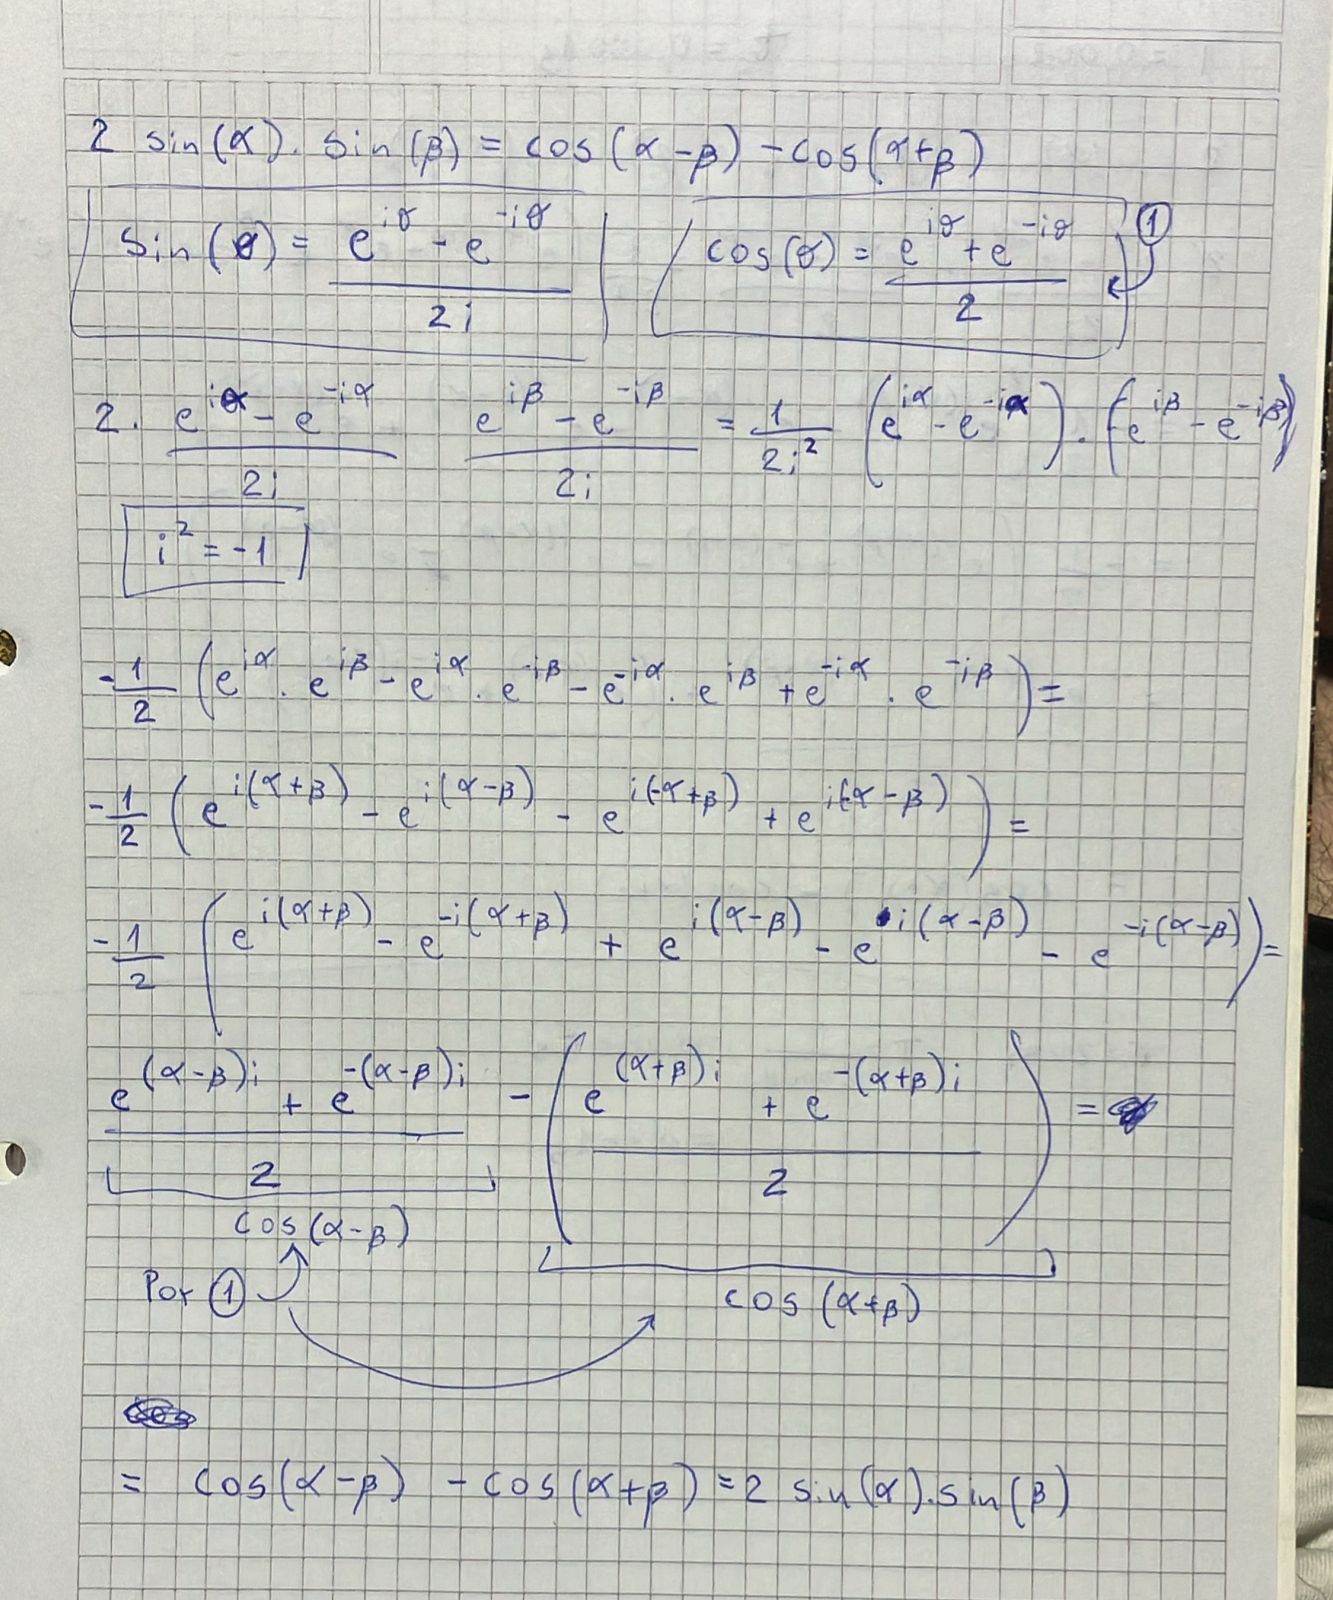 2 sin(α). sin(β) = cos(α-β) - cos(α+β)
sin(θ) = (e^{iθ} - e^{-iθ})/2i    cos(θ) = (e^{iθ} + e^{-iθ})/2 ①
2. (e^{iα} - e^{-iα})/2i (e^{iβ} - e^{-iβ})/2i = 1/2i² (e^{iα} - e^{-iα}) . (e^{iβ} - e^{-iβ})
i² = -1
-1/2 (e^{iα} . e^{iβ} - e^{iα} . e^{-iβ} - e^{-iα} . e^{iβ} + e^{-iα} . e^{-iβ}) =
-1/2 (e^{i(α+β)} - e^{i(α-β)} - e^{i(-α+β)} + e^{i(-α-β)}) =
-1/2 (e^{i(α+β)} - e^{-i(α+β)} + e^{i(α-β)} - e^{i(α-β)} - e^{-i(α-β)}) =
(e^{(α-β)i} + e^{-(α-β)i})/2 - ((e^{(α+β)i} + e^{-(α+β)i})/2) =
cos(α-β)
Por ①
cos(α+β)
= cos(α-β) - cos(α+β) = 2 sin(α).sin(β)